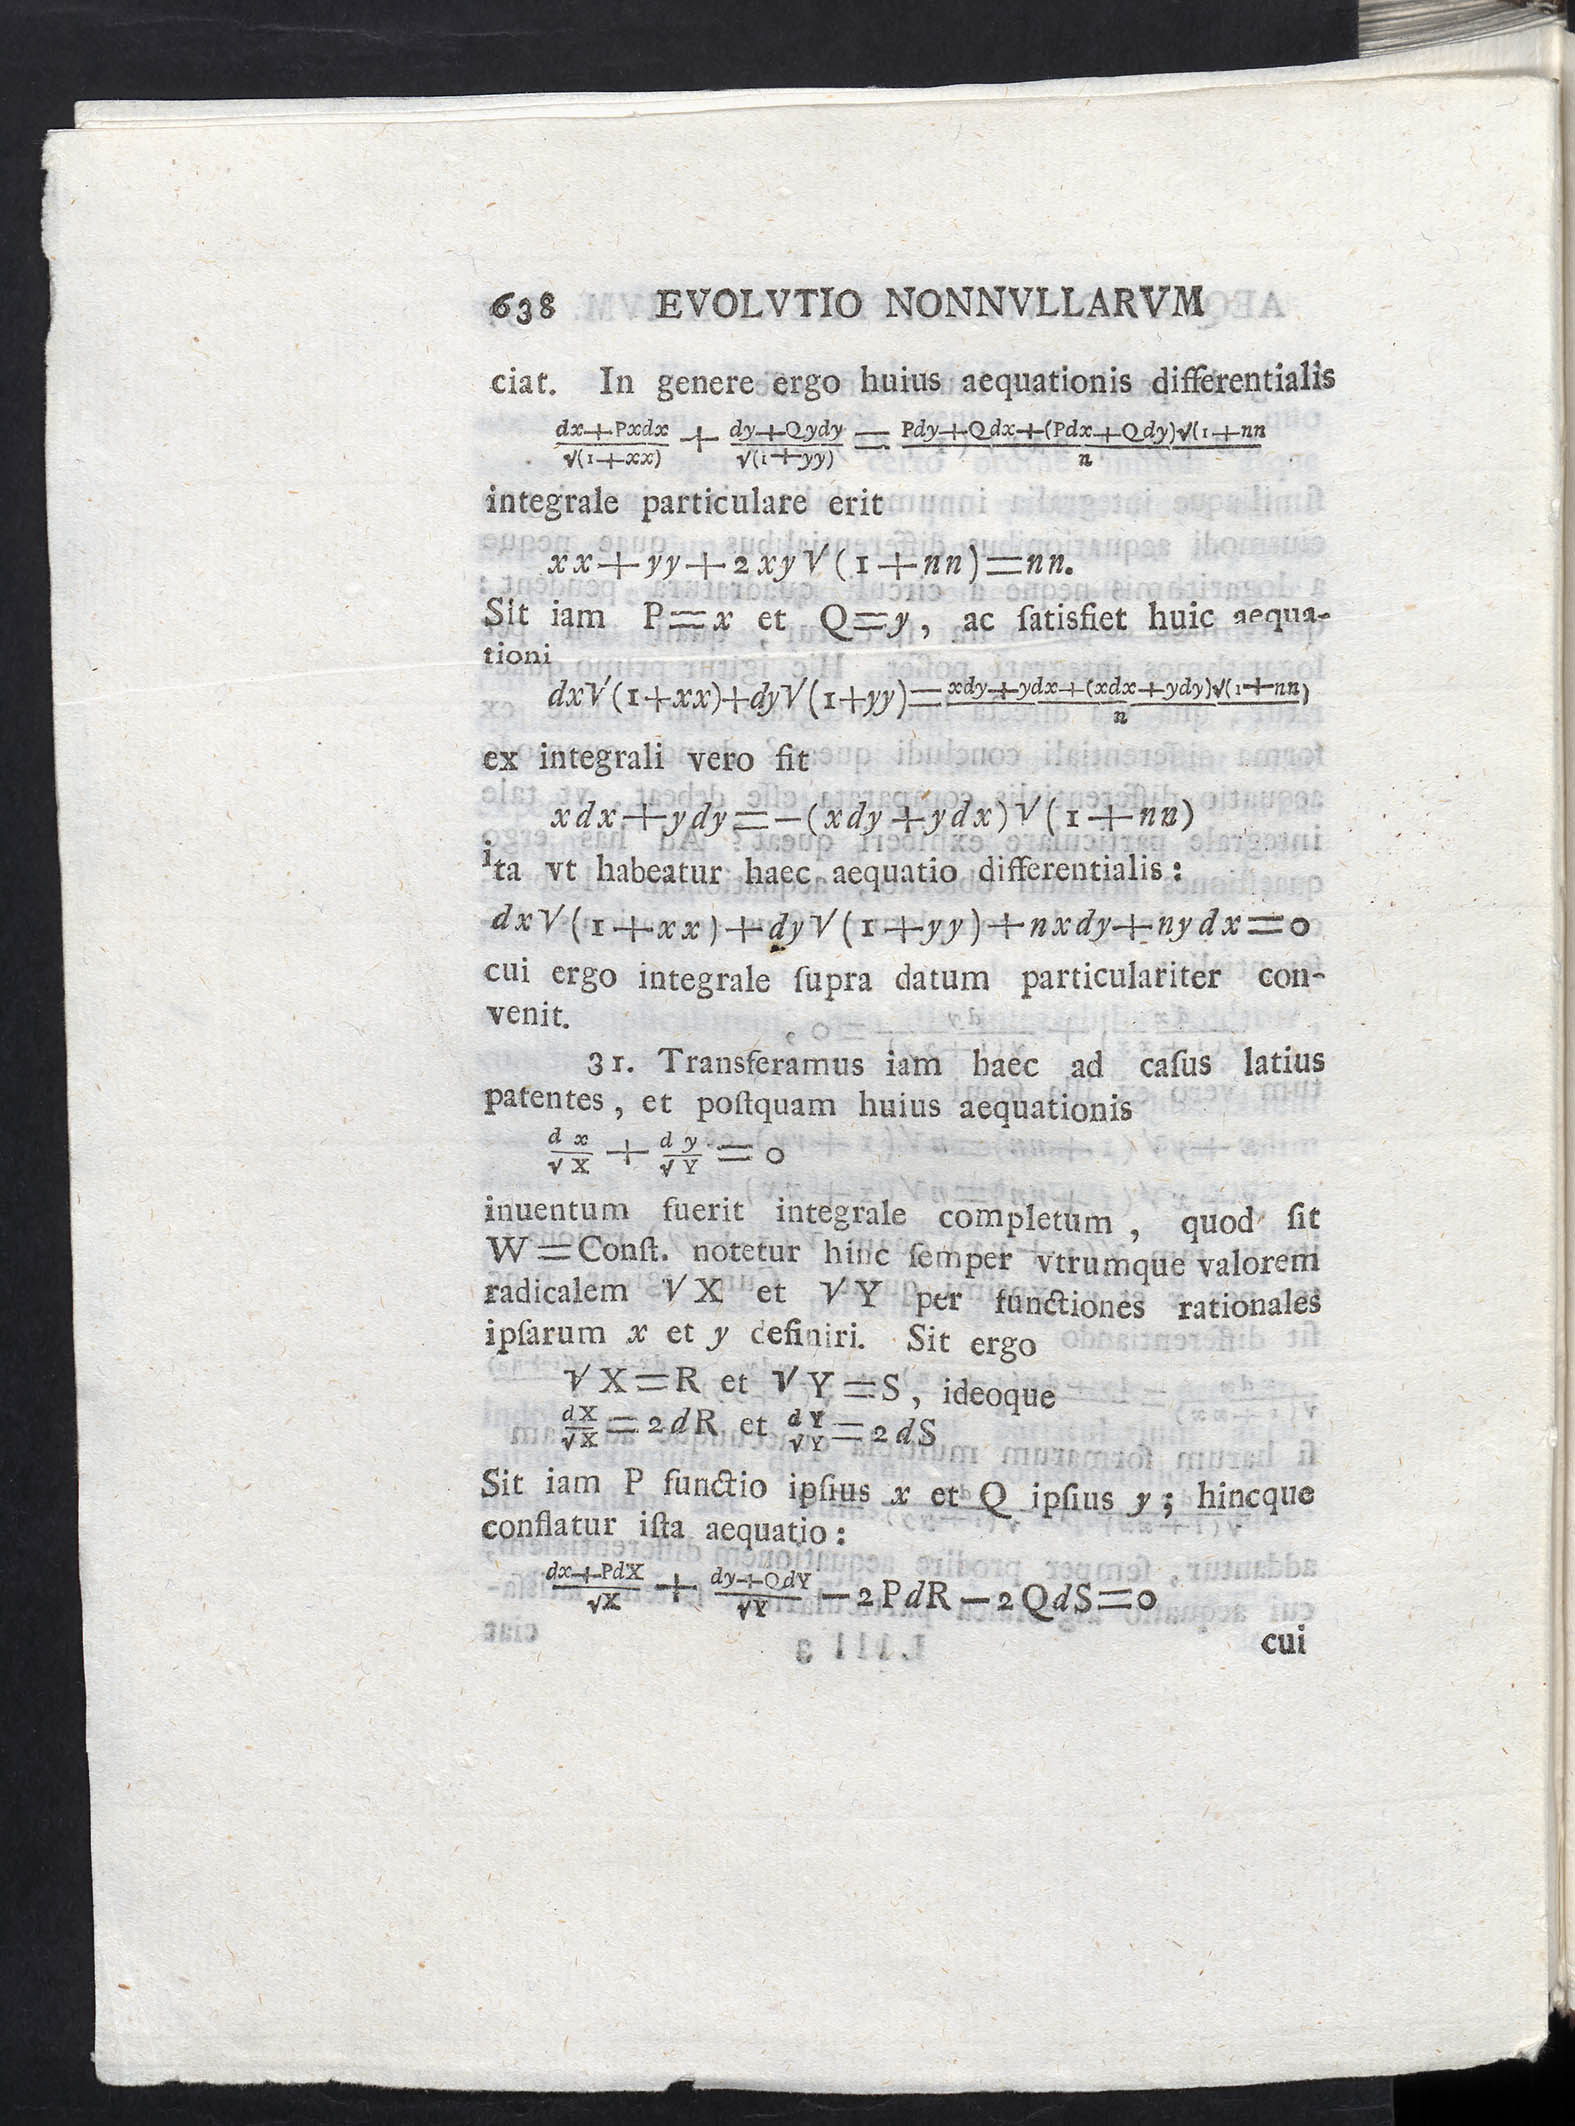 638 EVOLVTIO NONNVLLARVM
ciat. In genere ergo huius aequationis differentialis
dx+Pxdx/√(1+xx) + dy+Qydy/√(1+yy) = Pdy+Qdx+(Pdx+Qdy)√(1+nn/n
integrale particulare erit
xx+yy+2xy√(1+nn)=nn.
Sit iam P=x et Q=y, ac ſatisfiet huic aequa-
tioni
dx√(1+xx)+dy√(1+yy)=xdy+ydx+(xdx+ydy)√(1+nn)/n
ex integrali vero fit
xdx+ydy=-(xdy+ydx)√(1+nn)
ita vt habeatur haec aequatio differentialis:
dx√(1+xx)+dy√(1+yy)+nxdy+nydx=0
cui ergo integrale ſupra datum particulariter con-
venit.
31. Transferamus iam haec ad caſus latius
patentes, et poſtquam huius aequationis
dx/√X + dy/√Y = 0
inuentum fuerit integrale completum, quod ſit
W=Conſt. notetur hinc ſemper vtrumque valorem
radicalem √X et √Y per functiones rationales
ipſarum x et y definiri. Sit ergo
√X=R et √Y=S, ideoque
dX/√X=2dR et dY/√Y=2dS
Sit iam P functio ipſius x et Q ipſius y; hincque
conflatur iſta aequatio:
dx+PdX/√X + dy+QdY/√Y -2PdR-2QdS=0
cui